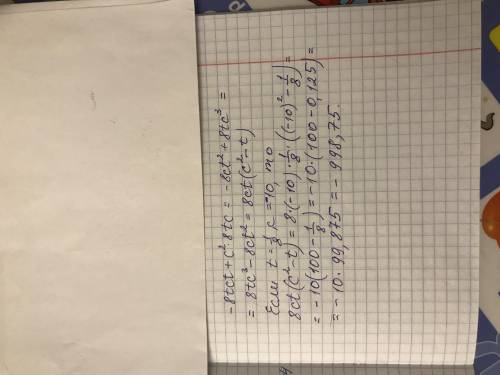 -8tct + c²·8tc = -8ct² + 8tc³ =
= 8tc³ - 8ct² = 8ct(c² - t)
Если t = 1/8, c = -10, то
8ct(c² - t) = 8·(-10)·1/8·((-10)² - 1/8) =
= -10(100 - 1/8) = -10·(100 - 0,125) =
= -10·99,875 = -998,75.